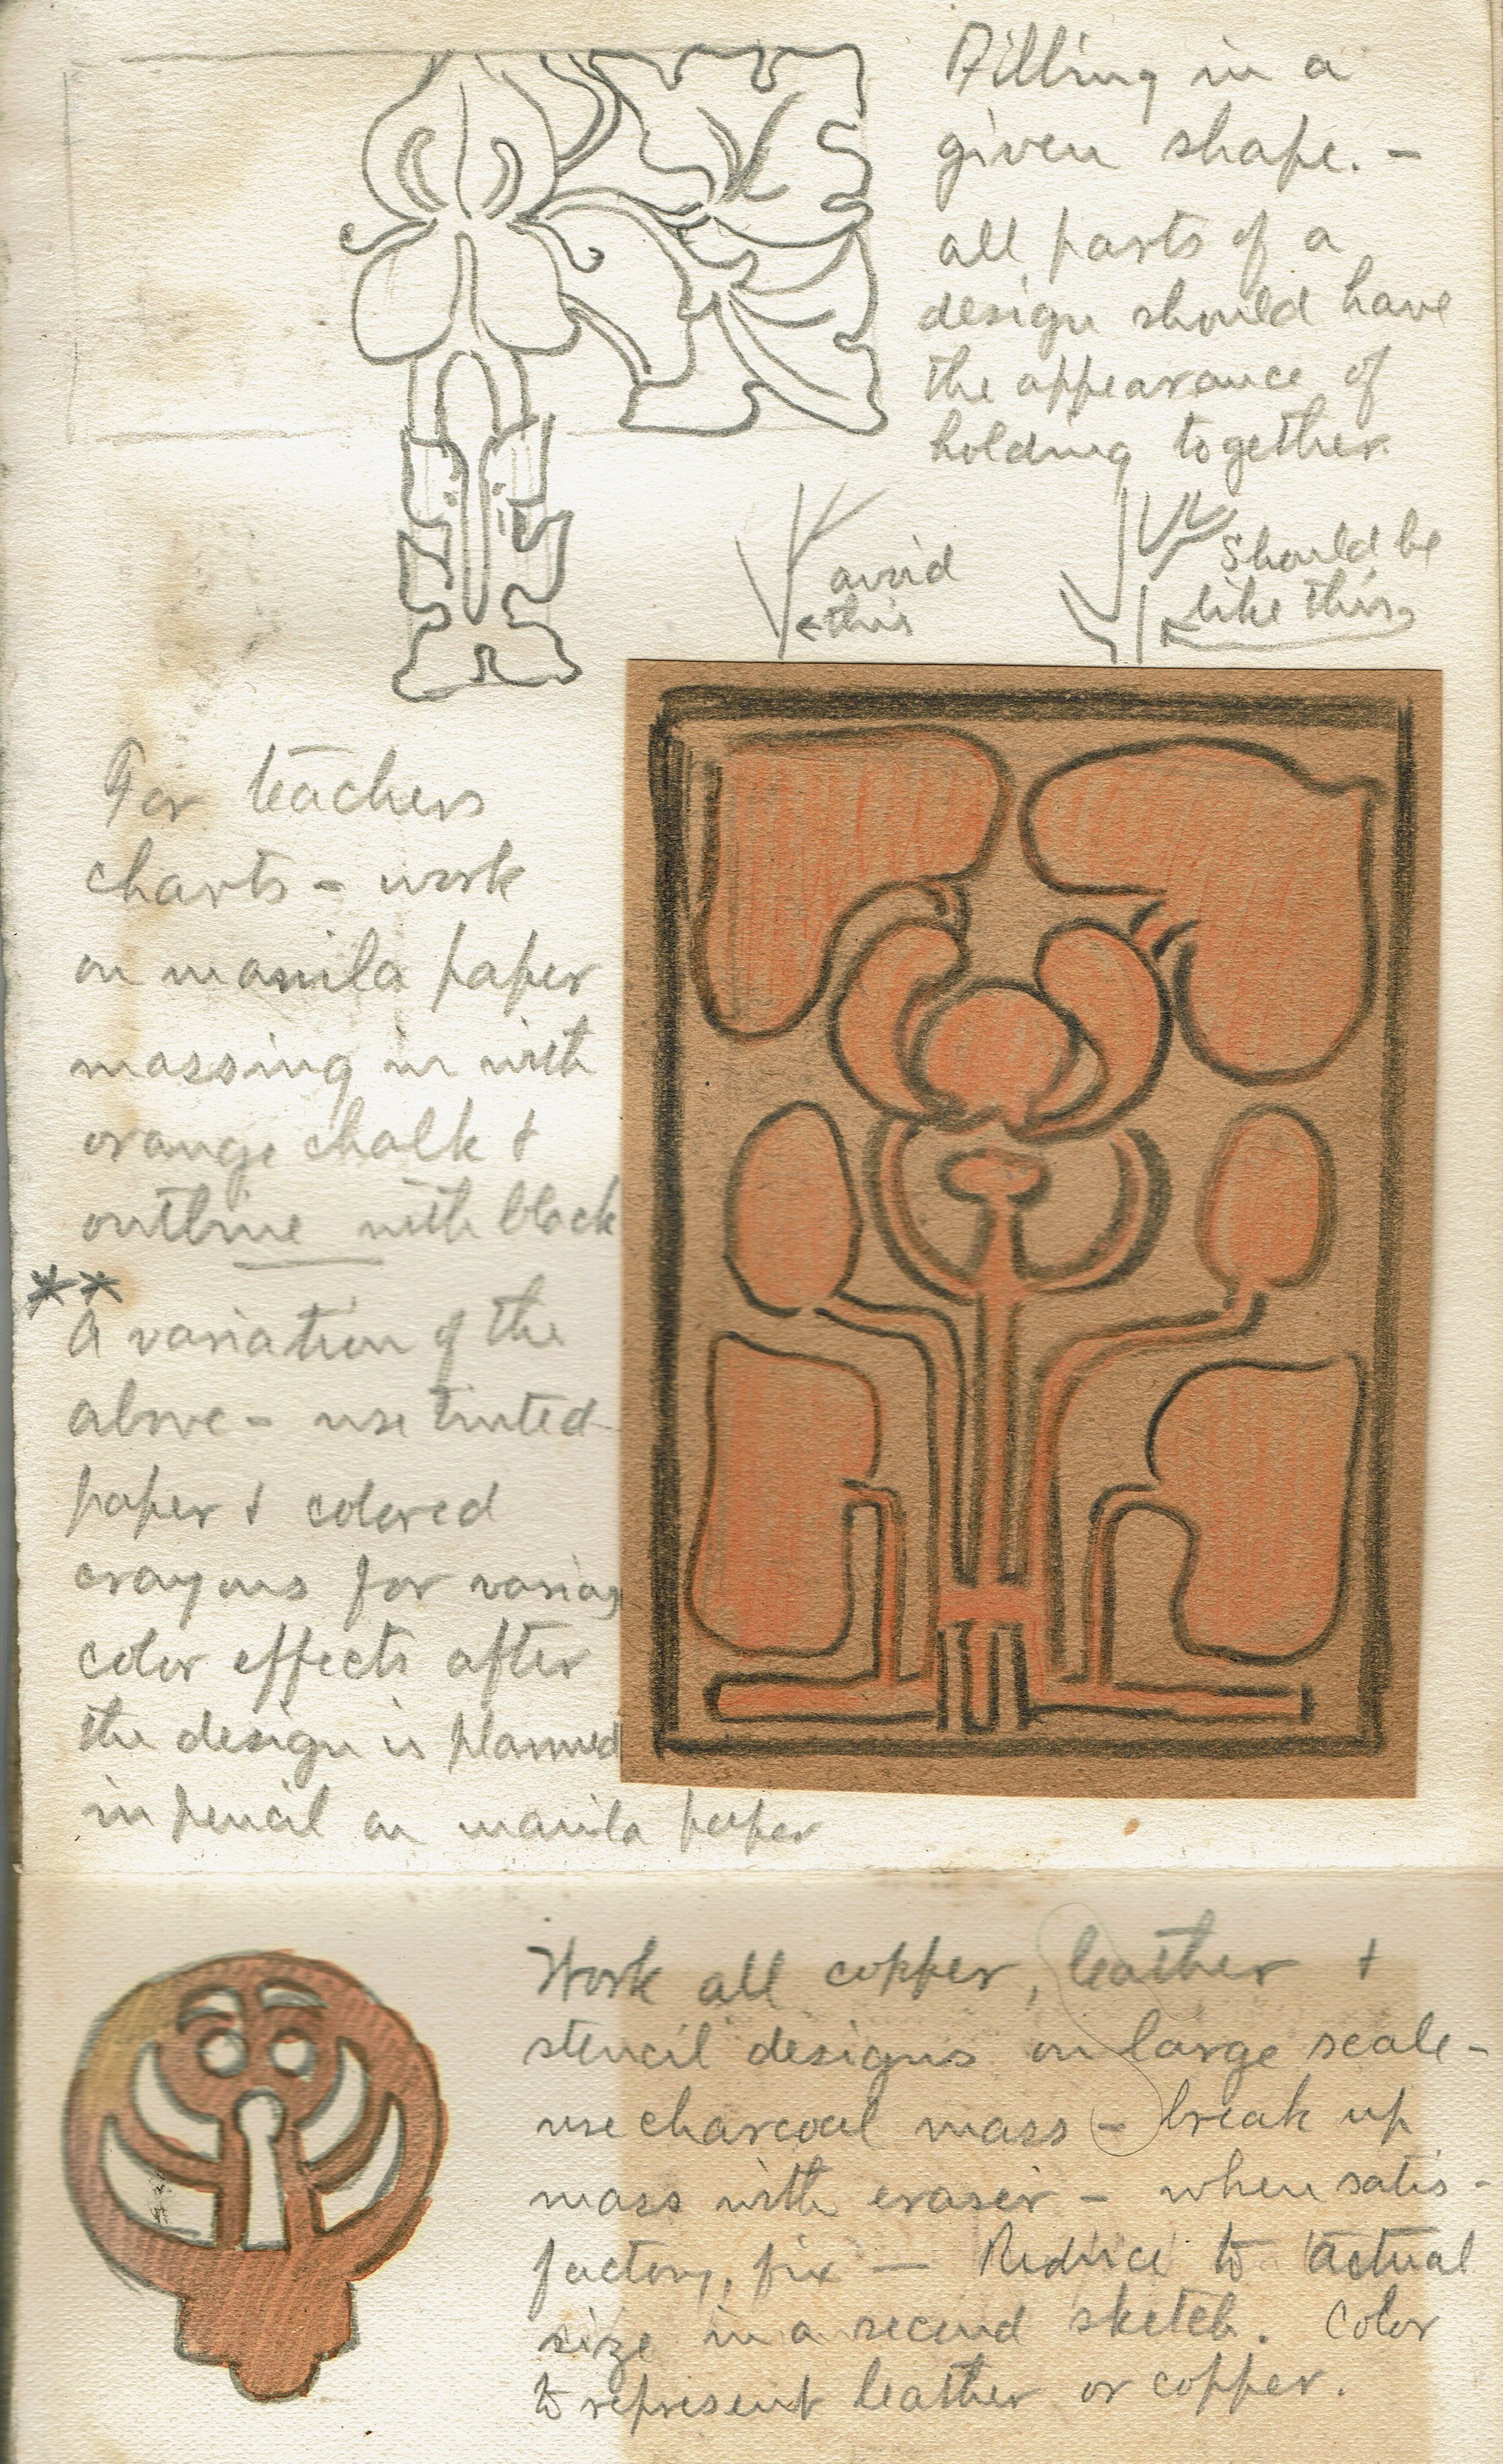 Filling in a
given shape. -
all parts of a
design should have
the appearance of
holding together
avoid
this
Should be
like this
For teachers
charts - work
on manila paper
massing in with
orange chalk &
outline with black
**
A variation of the
above - use tinted
paper & colored
crayons for various
color effects after
the design is planned
in pencil on manila paper
Work all copper, leather &
stencil designs on large scale -
use charcoal mass - break up
mass with eraser - when satis-
factory, fix — Reduce to actual
size in a second sketch. Color
to represent leather or copper.